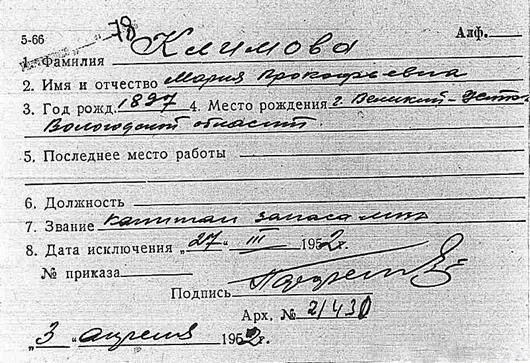 78
5-66 Алф.
1. Фамилия Климова
2. Имя и отчество Мария Прокофьевна
3. Год рожд. 1897 4. Место рождения г. Великий-Устюг
Вологодской области.
5. Последнее место работы
6. Должность
7. Звание капитан запаса
8. Дата исключения „27“ III 1952г.
№ приказа
Подпись
Арх. № 21430
„3“ апреля 1952г.